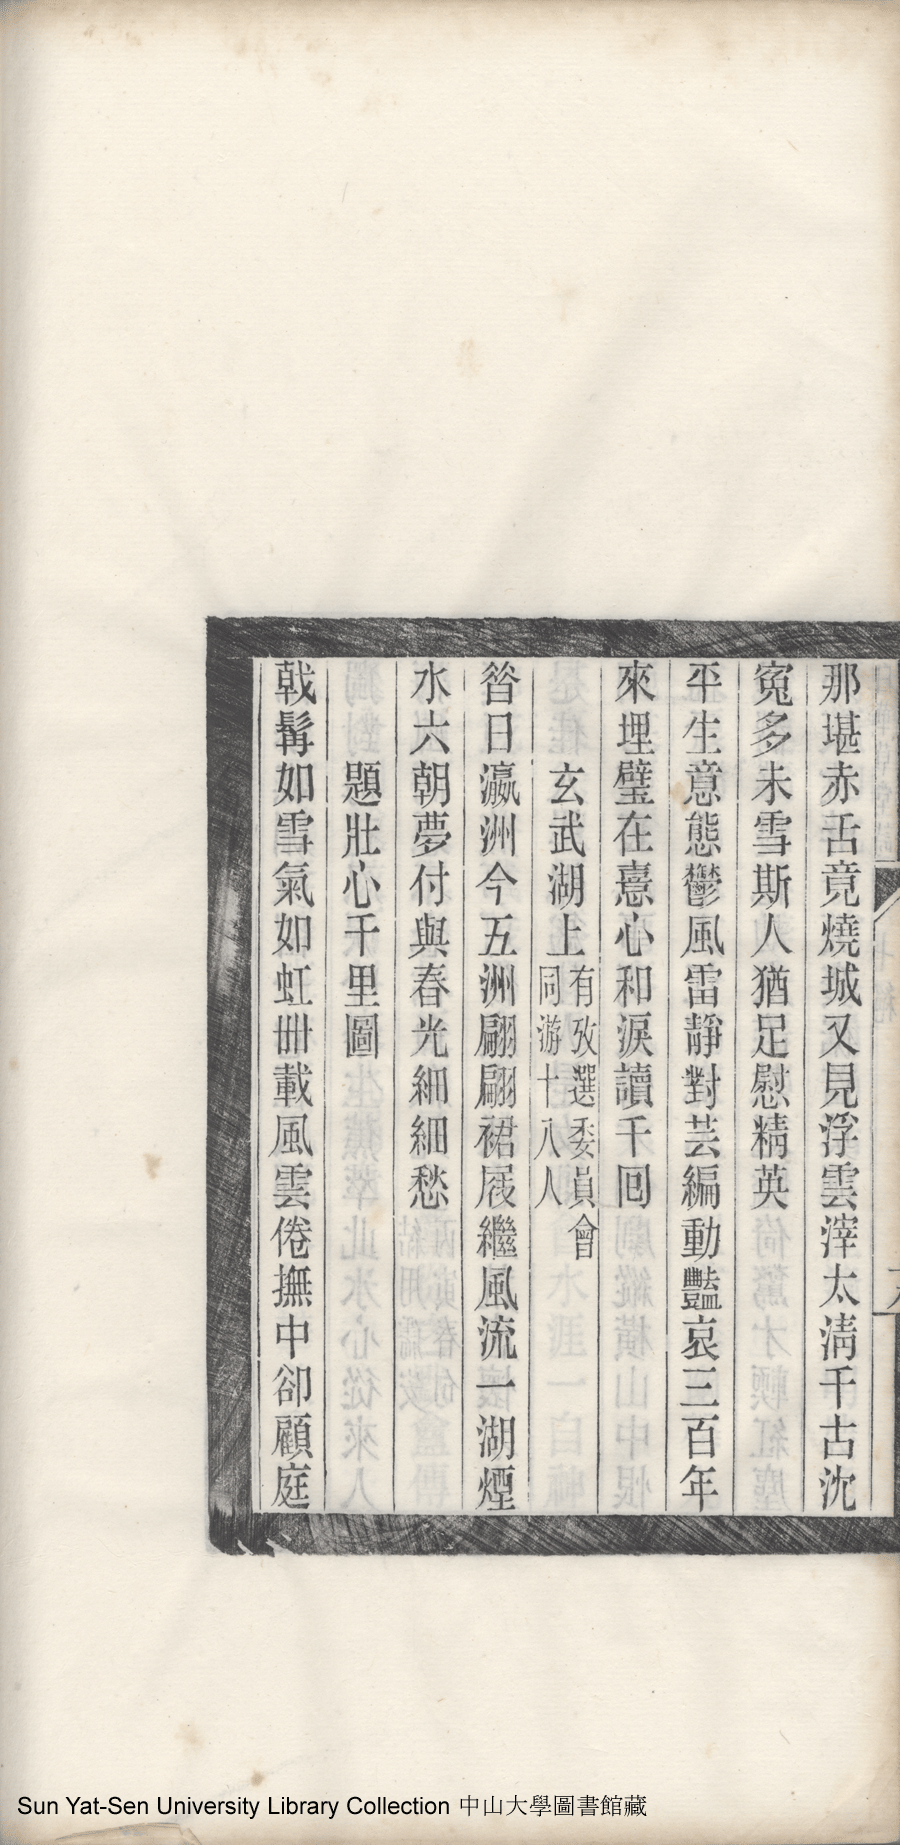 那堪赤舌竟燒城又見浮雲滓太淸千古沈
寃多未雪斯人猶足慰精英
平生意態鬱風雷靜對芸編動豔哀三百年
來埋璧在憙心和淚讀千囘
玄武湖上有攷選委員會同游十八人
昝日瀛洲今五洲翩翩裙屐繼風流一湖煙
水六朝夢付與春光細細愁
題壯心千里圖
戟髯如雪氣如虹卌載風雲倦撫中卻顧庭
Sun Yat-Sen University Library Collection 中山大學圖書館藏